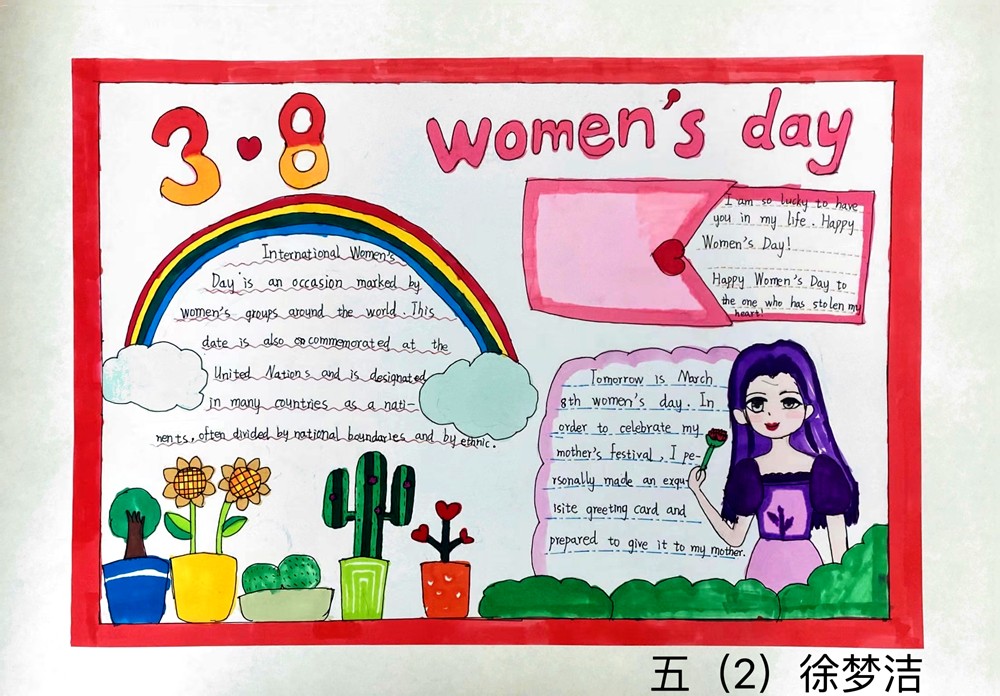 3·8
women's day
International Women's
Day is an occasion marked by
women's groups around the world. This
date is also commemorated at the
United Nations and is designated
in many countries as a nati-
nents, often divided by national boundaries and by ethnic.
I am so lucky to have
you in my life. Happy
Women's Day!
Happy Women's Day to
the one who has stolen my
heart!
Tomorrow is March
8th women's day. In
order to celebrate my
mother's festival, I pe-
rsonally made an exqu-
isite greeting card and
prepared to give it to my mother.
五（2）徐梦洁